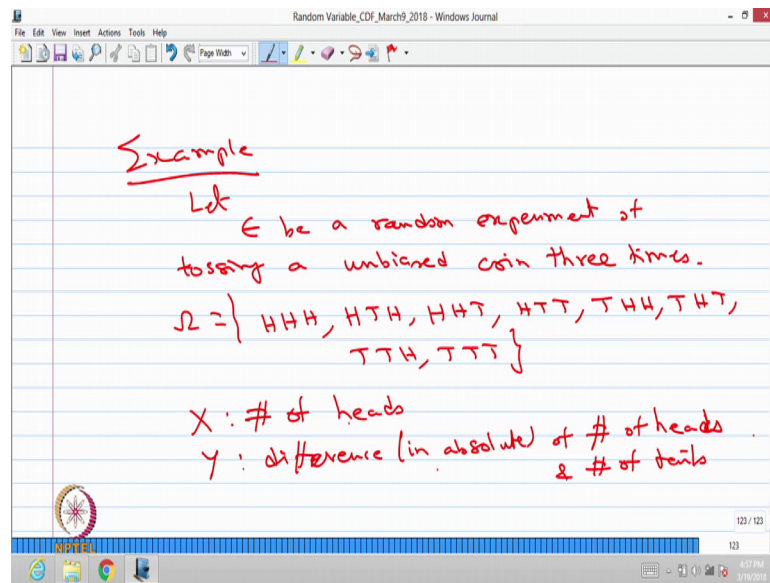 Random Variable_CDF_March9_2018 - Windows Journal
File Edit View Insert Actions Tools Help
Page Width
Example
Let
E be a random experiment of
tossing a unbiased coin three times.
Ω = { HHH, HTH, HHT, HTT, THH, THT,
TTH, TTT }
X : # of heads
Y : difference (in absolute) of # of heads
& # of tails
123 / 123
NPTEL
123
4:57 PM
3/19/2018